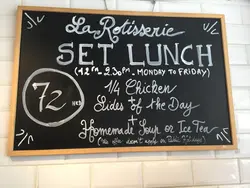 La Rotisserie
SET LUNCH
(12pm - 2.30pm - MONDAY TO FRIDAY)
72 HKD
1/4 Chicken
+
Sides of the Day
+
Homemade Soup or Ice Tea